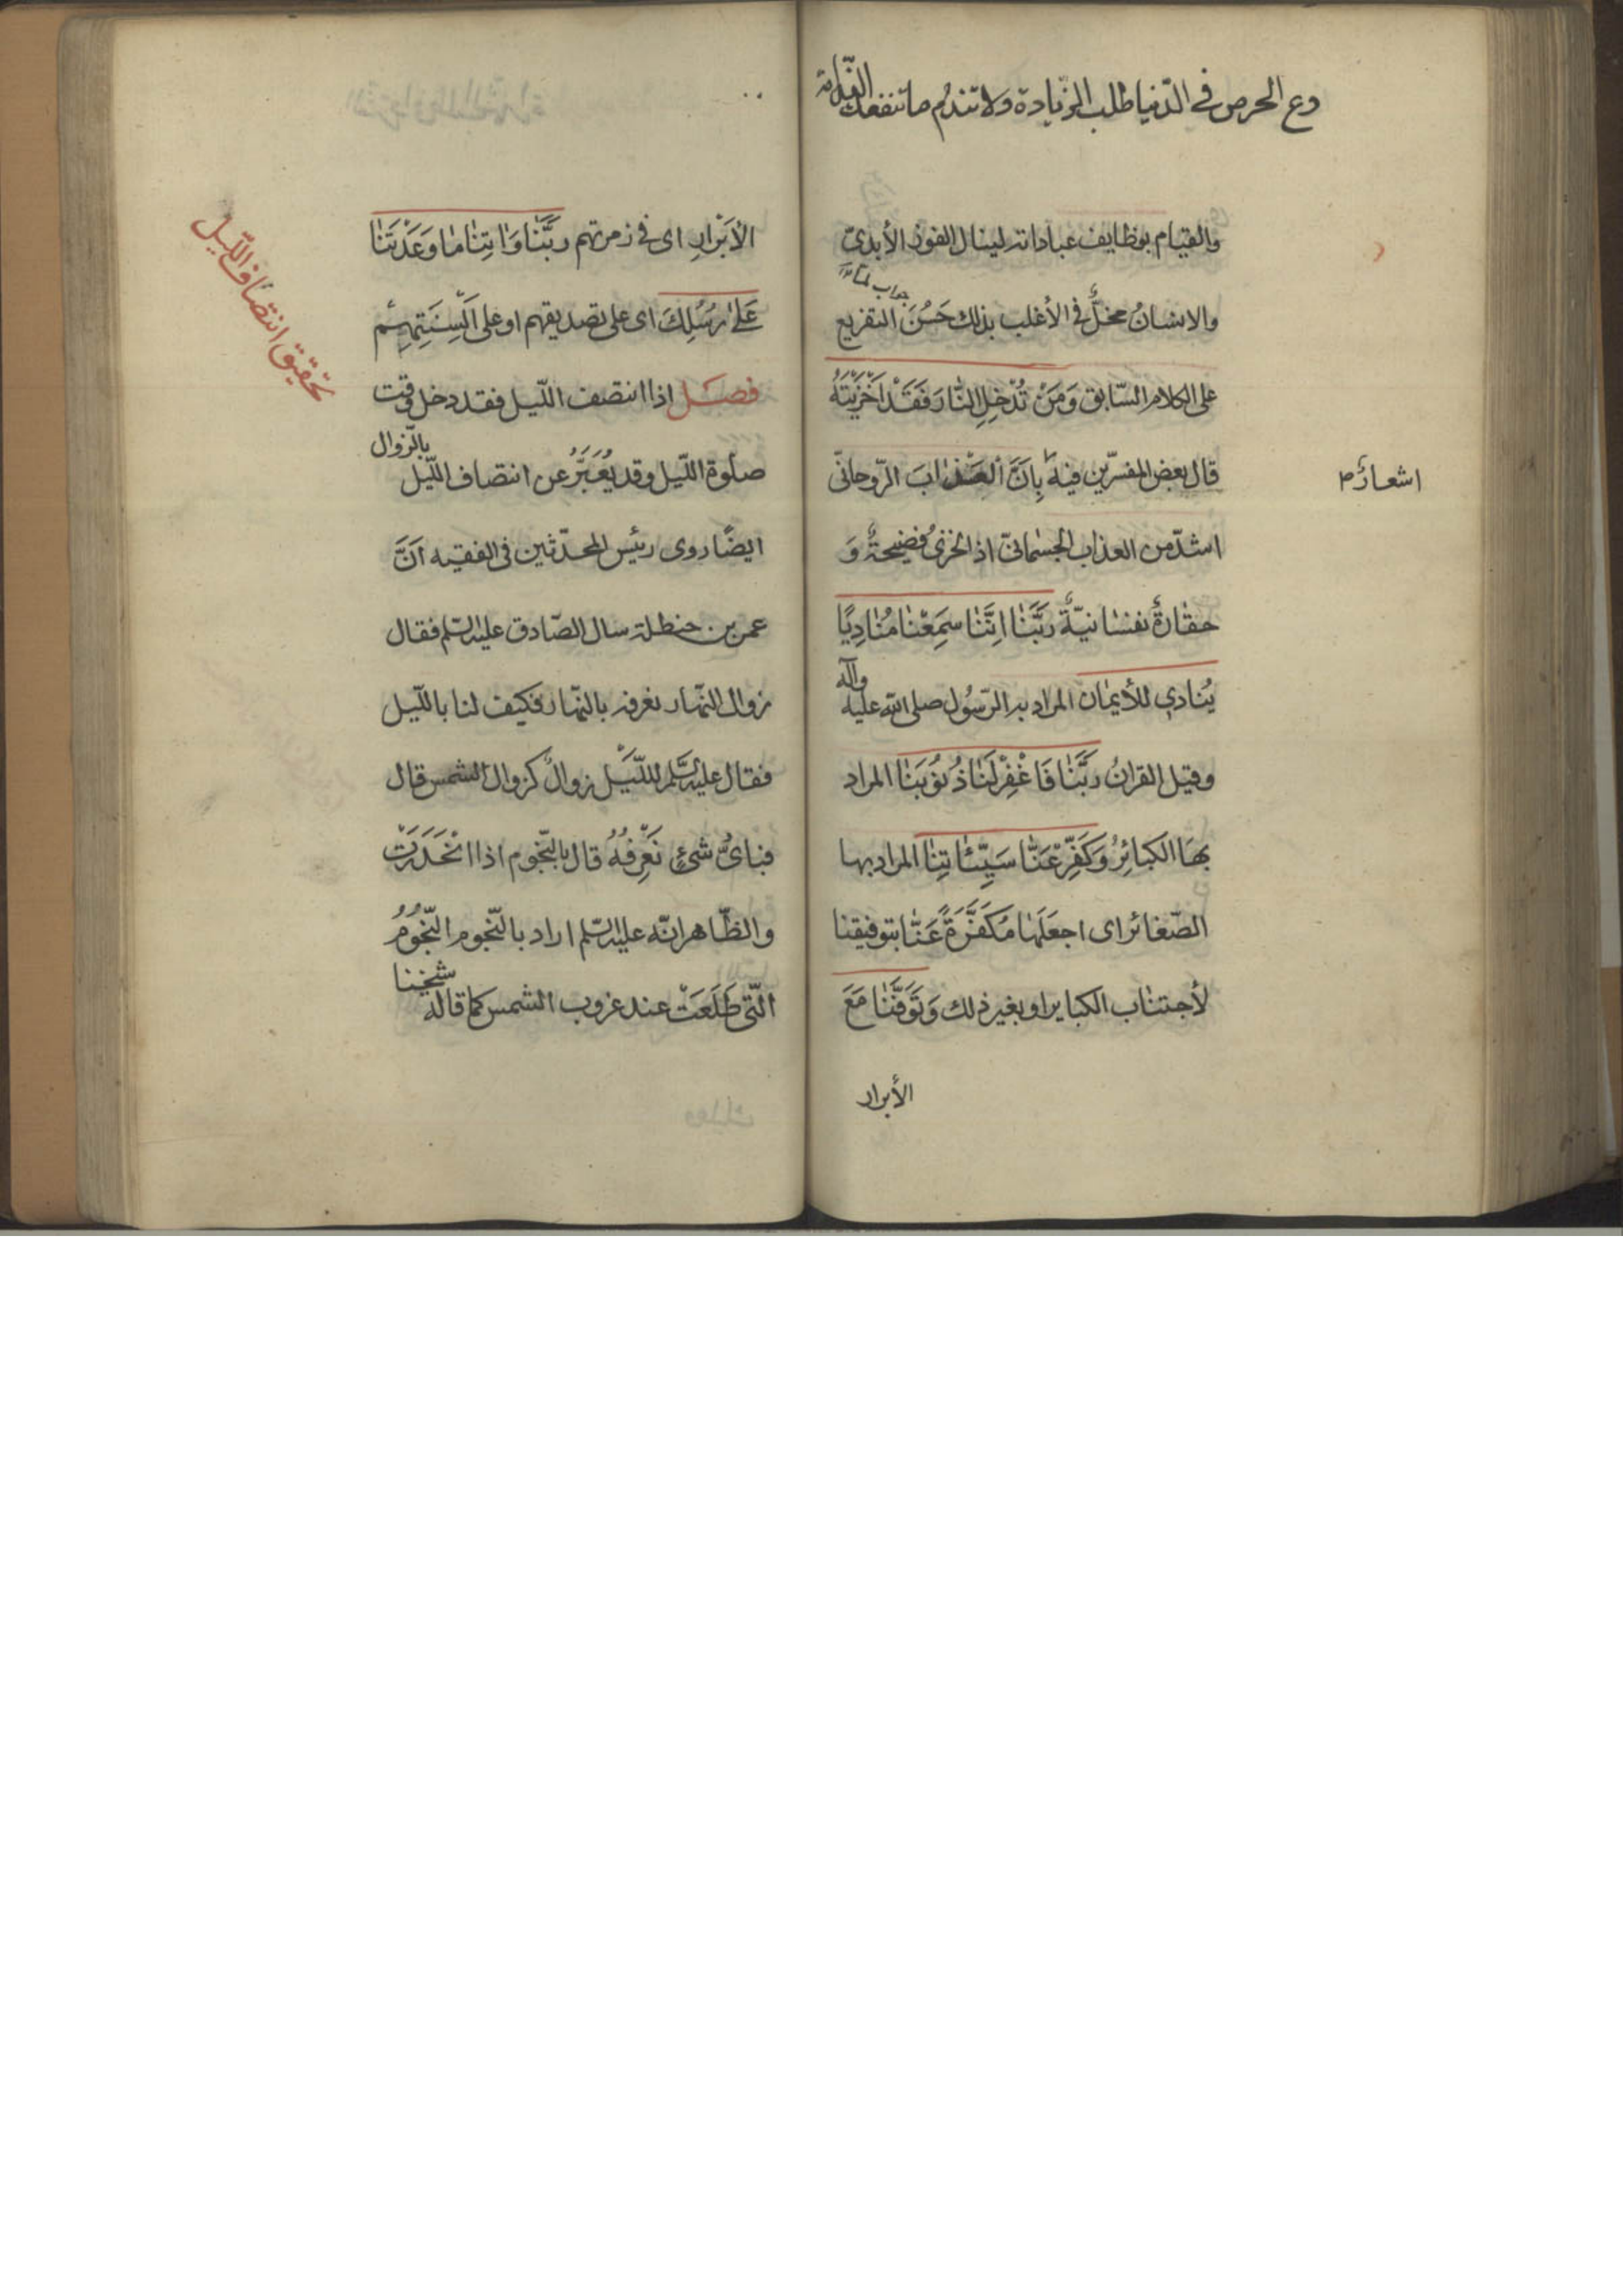 دع الحرص في الدّنيا طلب الزّيادة ولا تندم ما تنفعك النّدامة
والقيام بوظايف عباداته لينال الفوز الأبدىّ
جواب لمّا
والانسانُ مخلٌّ فى الأغلب بذلك حَسُنَ التفريع
على الكلام السّابق وَمَنْ تُدْخِلِ النّٰارَ فَقَدْ اَخْزَيْتَهُ
قال بعض المفسّرين فيه بِاَنَّ العَذابَ الرّوحانىّ
اشعارٌ م
اشدّ من العذاب الجسمانىّ اذ الخزىُ فضيحةٌ وَ
حقٰارةٌ نفسٰانيّةٌ رَبَّنٰا اِنَّنٰا سَمِعْنٰا مُنٰادِيًا
يُنٰادي للأيمٰان المراد به الرّسُول صلى الله عليه وآله
وقيل القرانُ رَبَّنٰا فَاغْفِرْ لَنٰا ذُنُوبَنٰا المراد
بهَا الكبائِرُ وَكَفِّرْ عَنّٰا سَيِّئٰاتِنٰا المراد بها
الصّغائر اى اجعَلهٰا مُكَفَّرَةً عَنّٰا بتوفيقنا
لأجتنٰاب الكباير او بغير ذلك وَتَوَفَّنٰا مَعَ
الأبرار
الأَبْرٰارِ اى فى زمرتهم رَبَّنٰا وَاٰتِنٰا مٰا وَعَدْتَنٰا
عَلىٰ رُسُلِكَ اى على تصديقهم او على اَلْسِنَتِهِمْ
تحقيق انتصاف اللّيل
فصـل اذا انتصف اللّيل فقد دخل وقت
صلٰوة اللّيل وقد يُعَبَّرُ عن انتصاف اللّيل بالزّوال
ايضًا روى رئيس المحدّثين فى الفقيه اَنَّ
عمر بن حنظلة سال الصّادق عليه السّلم فقال
زوال النّهٰار نعرفه بالنّهٰار فكيف لنا باللّيل
فقال عليه السّلم للّيْل زوالٌ كزوال الشمس قال
فباىِّ شئٍ نَعْرِفُهُ قال بالنّجوم اذا انْحَدَرَتْ
والظّاهر انّه عليه السّلم اراد بالنّجوم النّجُومُ
الّتى طَلَعَتْ عند غروب الشمس كما قاله شيخنا